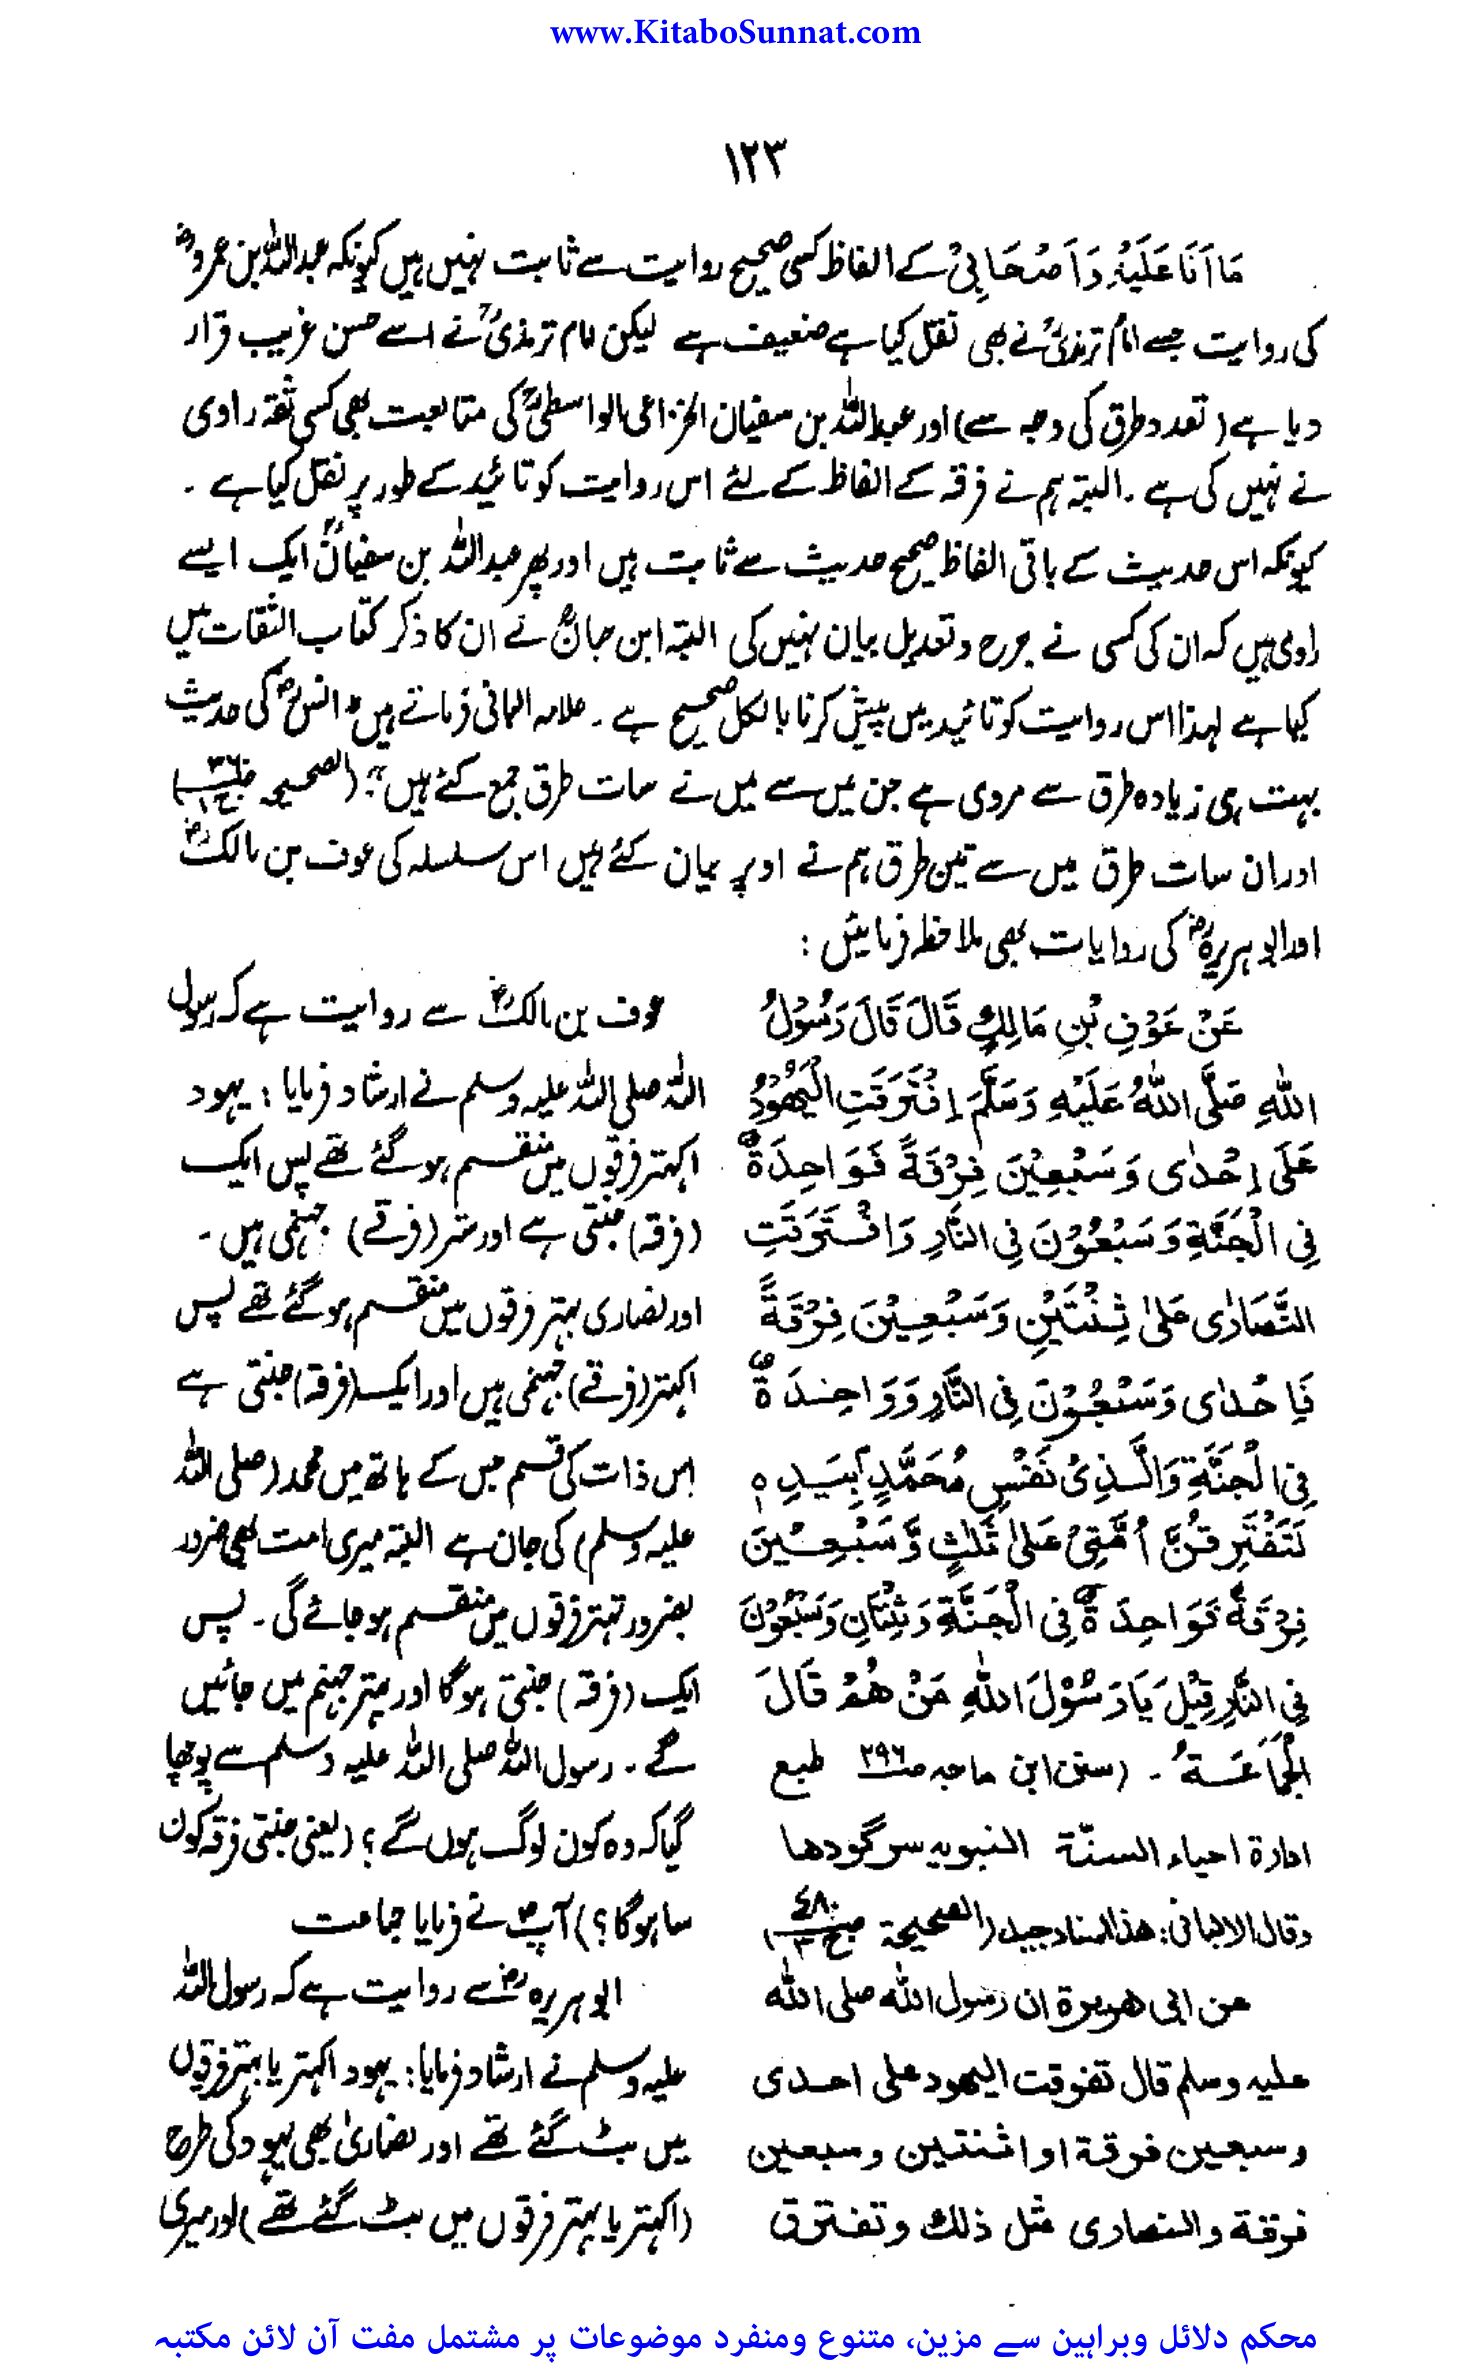 www.KitaboSunnat.com
۱۲۳
مَا اَنَا عَلَيْهِ وَاَصْحَابِیْ کے الفاظ کسی صحیح روایت سے ثابت نہیں ہیں کیونکہ عبداللہ بن عمروؓ
کی روایت جسے امام ترمذیؒ نے بھی نقل کیا ہے ضعیف ہے لیکن امام ترمذیؒ نے اسے حسن غریب قرار
دیا ہے (تعدد طرق کی وجہ سے) اور عبداللہ بن سفیان الخزاعی الواسطیؒ کی متابعت بھی کسی ثقہ راوی
نے نہیں کی ہے۔ البتہ ہم نے فرقہ کے الفاظ کے لئے اس روایت کو تائید کے طور پر نقل کیا ہے۔
کیونکہ اس حدیث کے باقی الفاظ صحیح حدیث سے ثابت ہیں اور پھر عبداللہ بن سفیانؒ ایک ایسے
راوی ہیں کہ ان کی کسی نے جرح و تعدیل بیان نہیں کی البتہ ابن حبانؒ نے ان کا ذکر کتاب الثقات میں
کیا ہے لہذا اس روایت کو تائید میں پیش کرنا بالکل صحیح ہے۔ علامہ البانی فرماتے ہیں "انسؓ کی حدیث
بہت ہی زیادہ طرق سے مروی ہے جن میں سے میں نے سات طرق جمع کئے ہیں"۔ (الصحیحہ ص۳۶۰ ج۱)
اور ان سات طرق میں سے تین طرق ہم نے اوپر بیان کئے ہیں اس سلسلہ کی عوف بن مالکؓ
اور ابو ہریرہؓ کی روایات بھی ملاحظہ فرمائیں :
عَنْ عَوْفِ بْنِ مَالِكٍ قَالَ قَالَ رَسُوْلُ
اللّٰهِ صَلَّى اللّٰهُ عَلَيْهِ وَسَلَّمَ اِفْتَرَقَتِ الْيَهُوْدُ
عَلَى اِحْدٰى وَسَبْعِيْنَ فِرْقَةً فَوَاحِدَةٌ
فِى الْجَنَّةِ وَسَبْعُوْنَ فِى النَّارِ وَافْتَرَقَتِ
النَّصَارٰى عَلىٰ ثِنْتَيْنِ وَسَبْعِيْنَ فِرْقَةً
فَاِحْدٰى وَسَبْعُوْنَ فِى النَّارِ وَوَاحِدَةٌ
فِى الْجَنَّةِ وَالَّذِىْ نَفْسُ مُحَمَّدٍ بِيَدِهٖ
لَتَفْتَرِقَنَّ اُمَّتِىْ عَلىٰ ثَلٰثٍ وَّسَبْعِيْنَ
فِرْقَةً فَوَاحِدَةٌ فِى الْجَنَّةِ وَثِنْتَانِ وَسَبْعُوْنَ
فِى النَّارِ قِيْلَ يَا رَسُوْلَ اللّٰهِ مَنْ هُمْ قَالَ
الْجَمَاعَةُ ۔ (سنن ابن ماجہ ص۲۹۶ طبع
ادارة احیاء السنّة النبویہ سرگودھا
وقال الالبانی: هذا اسناد جید (الصحیحة ص۴۸۰ ج۳)
عن ابی هريرة ان رسول اللّٰه صلی اللّٰه
علیہ وسلم قال تفرقت الیهود علی احدی
وسبعین فرقة او اثنتین وسبعین
فرقة والنصاری مثل ذلك وتفترق
عوف بن مالکؓ سے روایت ہے کہ رسول
اللہ صلی اللہ علیہ وسلم نے ارشاد فرمایا : یہود
اکہتر فرقوں میں منقسم ہو گئے تھے پس ایک
(فرقہ) جنتی ہے اور ستر (فرقے) جہنمی ہیں۔
اور نصاریٰ بہتر فرقوں میں منقسم ہو گئے تھے پس
اکہتر (فرقے) جہنمی ہیں اور ایک (فرقہ) جنتی ہے
اس ذات کی قسم جس کے ہاتھ میں محمد (صلی اللہ
علیہ وسلم) کی جان ہے البتہ میری امت بھی ضرور
بضرور تہتر فرقوں میں منقسم ہو جائے گی۔ پس
ایک (فرقہ) جنتی ہوگا اور بہتر جہنم میں جائیں
گے۔ رسول اللہ صلی اللہ علیہ وسلم سے پوچھا
گیا کہ وہ کون لوگ ہوں گے؟ (یعنی جنتی فرقہ کون
سا ہوگا؟) آپؐ نے فرمایا جماعت
ابو ہریرہؓ سے روایت ہے کہ رسول اللہ
علیہ وسلم نے ارشاد فرمایا: یہود اکہتر یا بہتر فرقوں
میں بٹ گئے تھے اور نصاریٰ بھی یہود کی طرح
(اکہتر یا بہتر فرقوں میں بٹ گئے تھے) اور میری
محکم دلائل وبراہین سے مزین، متنوع ومنفرد موضوعات پر مشتمل مفت آن لائن مکتبہ